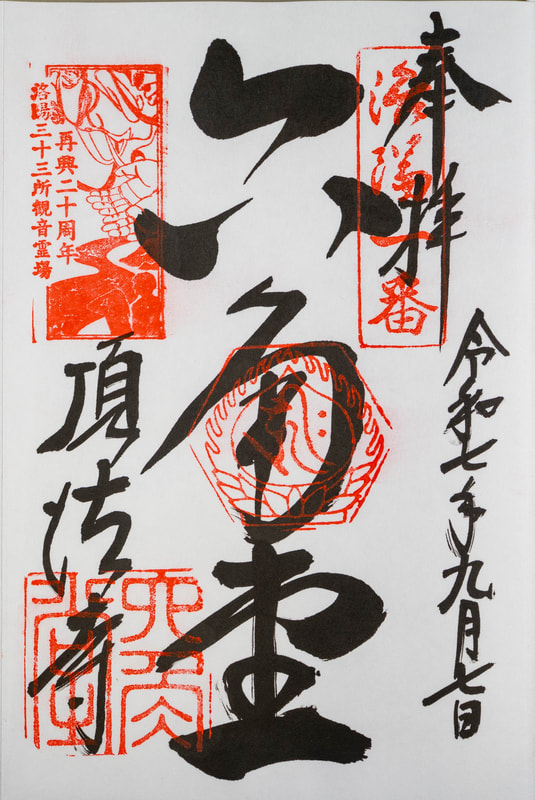 奉拝
洛陽一番
令和七年九月七日
六角堂
再興二十周年
洛陽三十三所観音霊場
頂法寺
六角堂